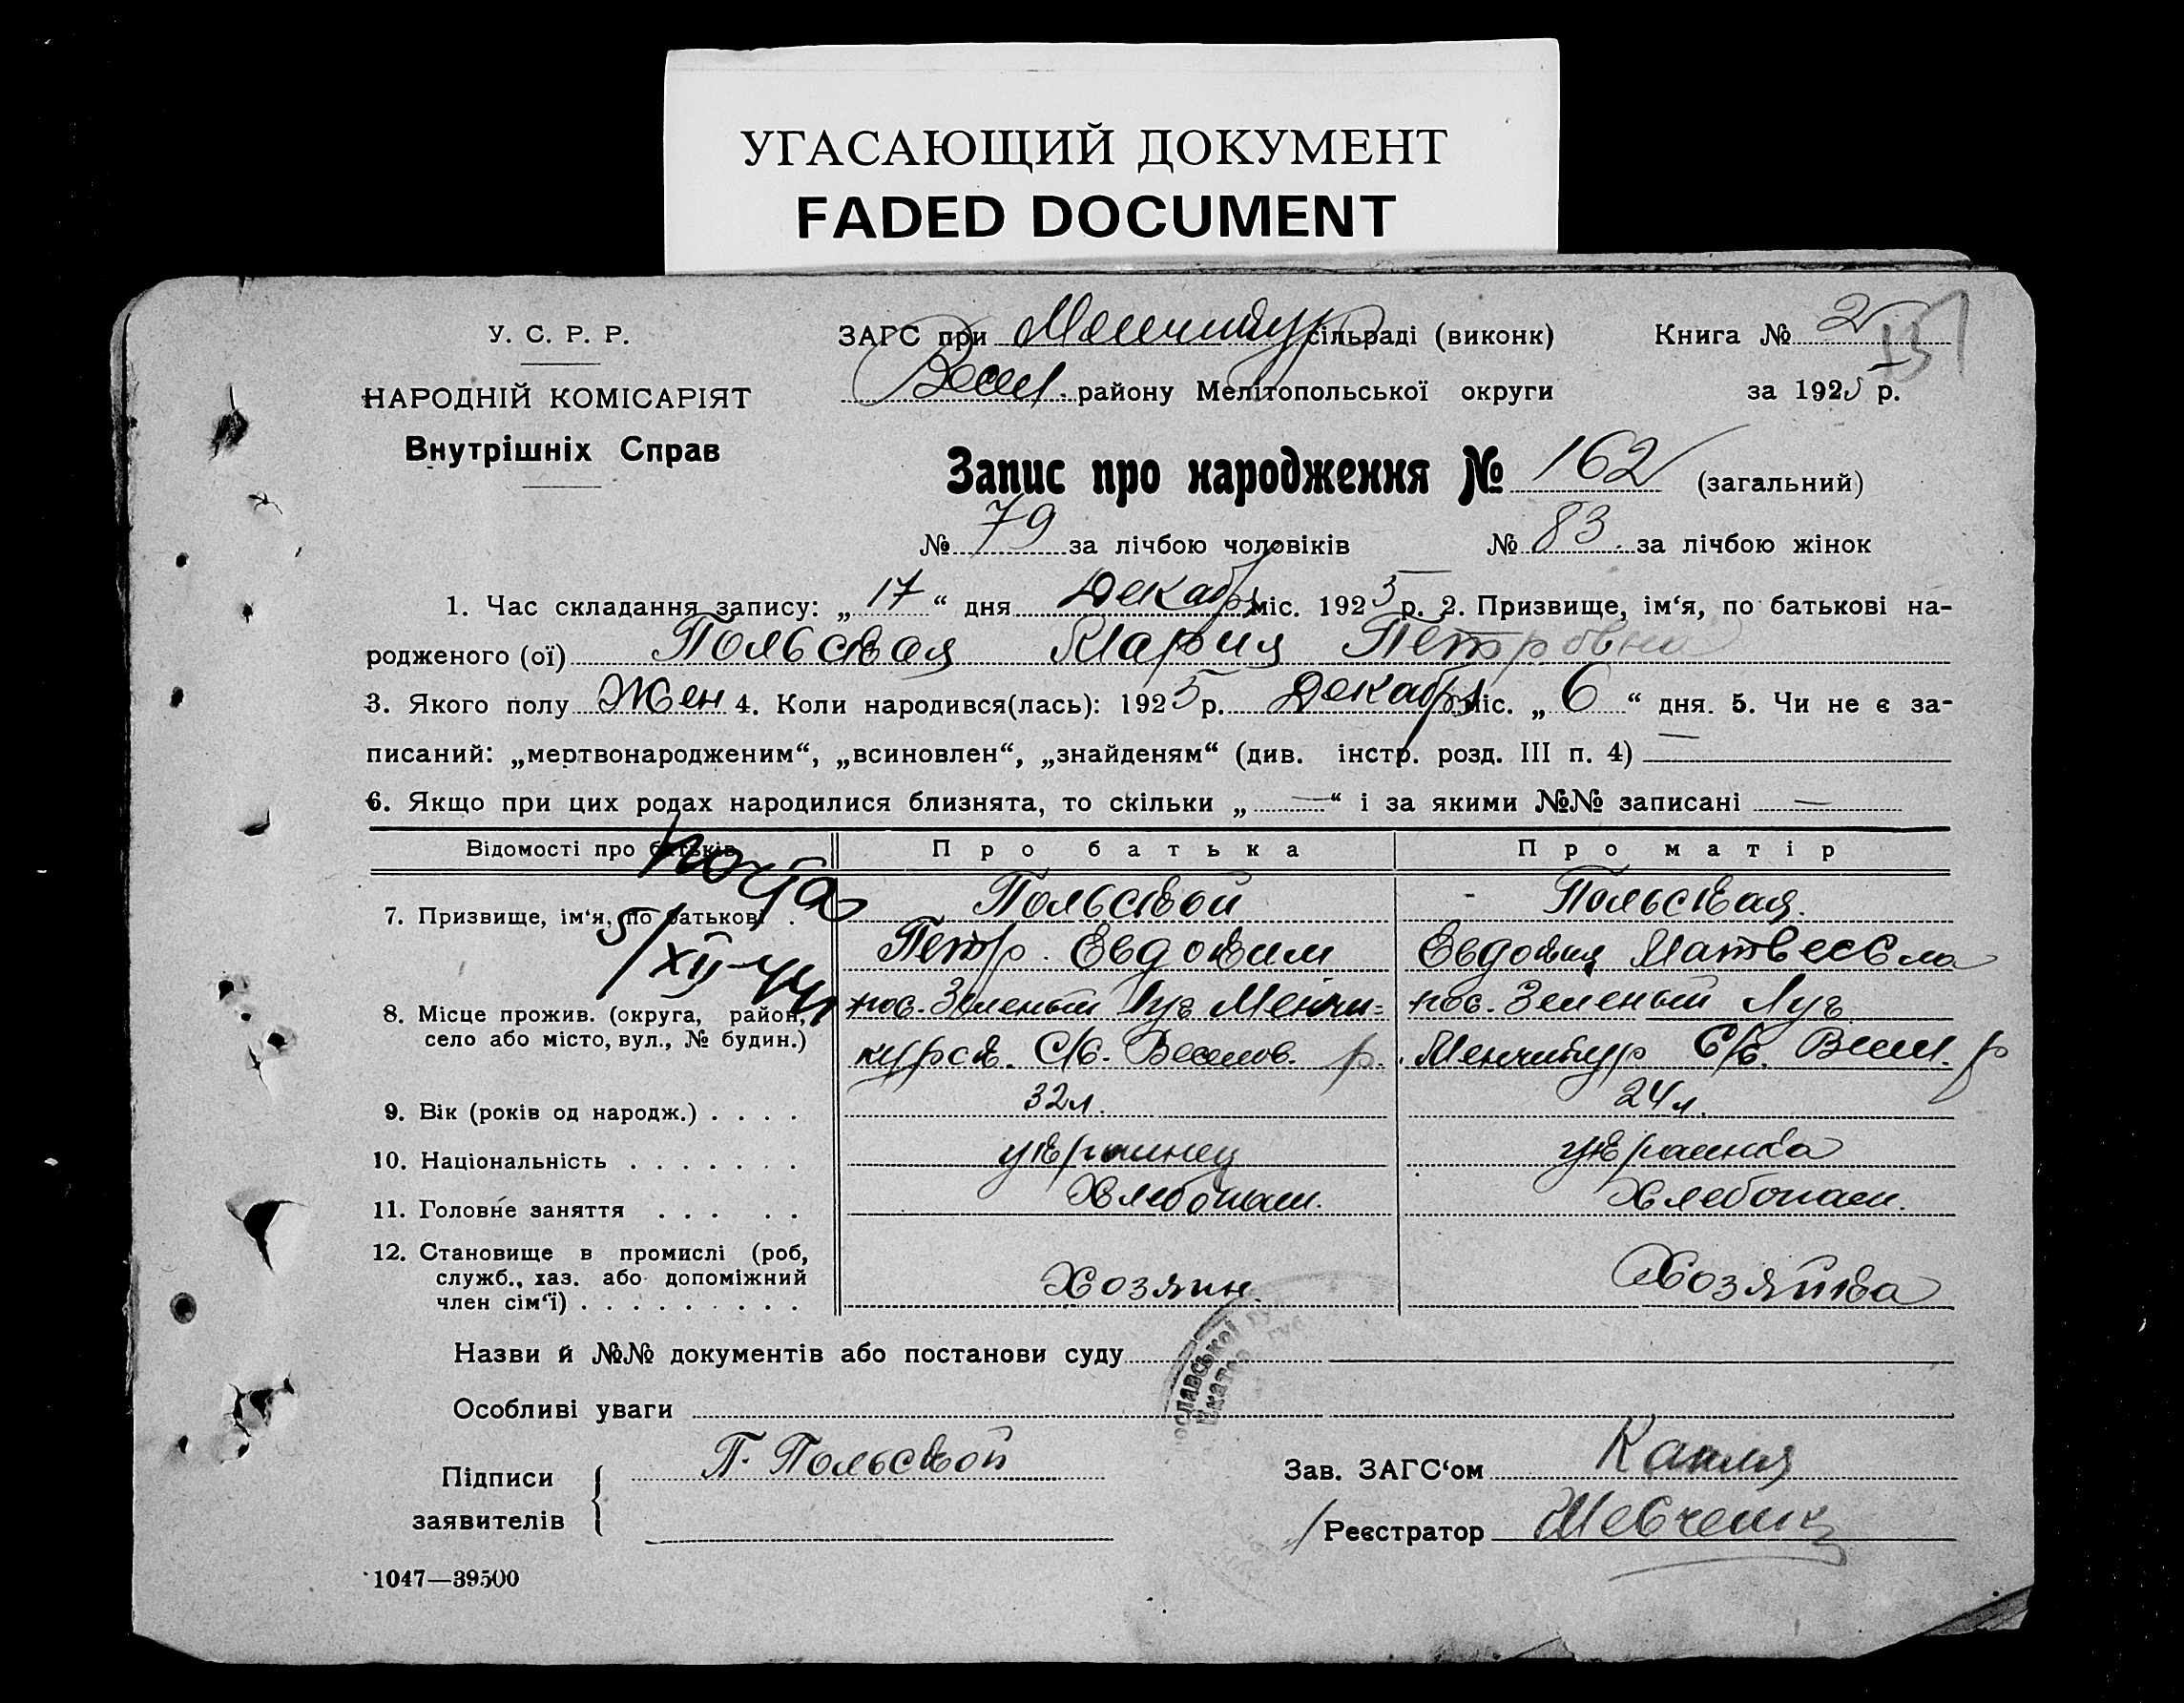 УГАСАЮЩИЙ ДОКУМЕНТ
FADED DOCUMENT
У. С. Р. Р.
НАРОДНІЙ КОМІСАРІЯТ
Внутрішніх Справ
ЗАГС при Менчикур сільраді (виконк)
Весел. району Мелітопольської округи
Книга № 2
за 1925 р.
Запис про народження № 162 (загальний)
№ 79 за лічбою чоловіків № 83 за лічбою жінок
1. Час складання запису: „17“ дня Декабр міс. 1925 р. 2. Призвище, ім‘я, по батькові на-
родженого (ої) Польская Мария Петровна
3. Якого полу Жен 4. Коли народився(лась): 1925 р. Декабря міс. „6“ дня. 5. Чи не є за-
писаний: „мертвонародженим“, „всиновлен“, „знайденям“ (див. інстр. розд. III п. 4) —
6. Якщо при цих родах народилися близнята, то скільки „—“ і за якими №№ записані —
Відомості про батьків
Про батька
Про матір
7. Призвище, ім‘я, по батькові .
Польской
Петр. Евдоким
Польская.
Евдокия Матвеевна
5/XII-44
8. Місце прожив. (округа, район,
село або місто, вул., № будин.)
пос. Зеленый Луг Менчи=
курск. С/С. Веселов. р.
пос. Зеленый Луг
Менчикур С/С. Весел. р
9. Вік (років од народж.) . . . .
32 л.
24 л.
10. Національність . . . . . . .
украинец
украинка
11. Головне заняття . . . . .
Хлебопаш.
Хлебопаш.
12. Становище в промислі (роб,
служб., хаз. або допоміжний
член сім‘ї) . . . . . . . . .
Хозяин.
Хозяйка
Назви й №№ документів або постанови суду
Особливі уваги
Підписи
заявителів
П. Польской
Зав. ЗАГС‘ом Капля
Реєстратор Шевченко
1047—39500